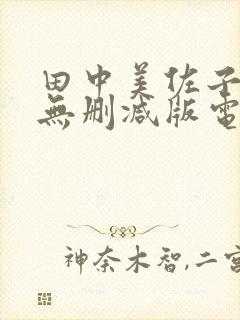 田中美佐子
無删减版電
神奈木智,二宮